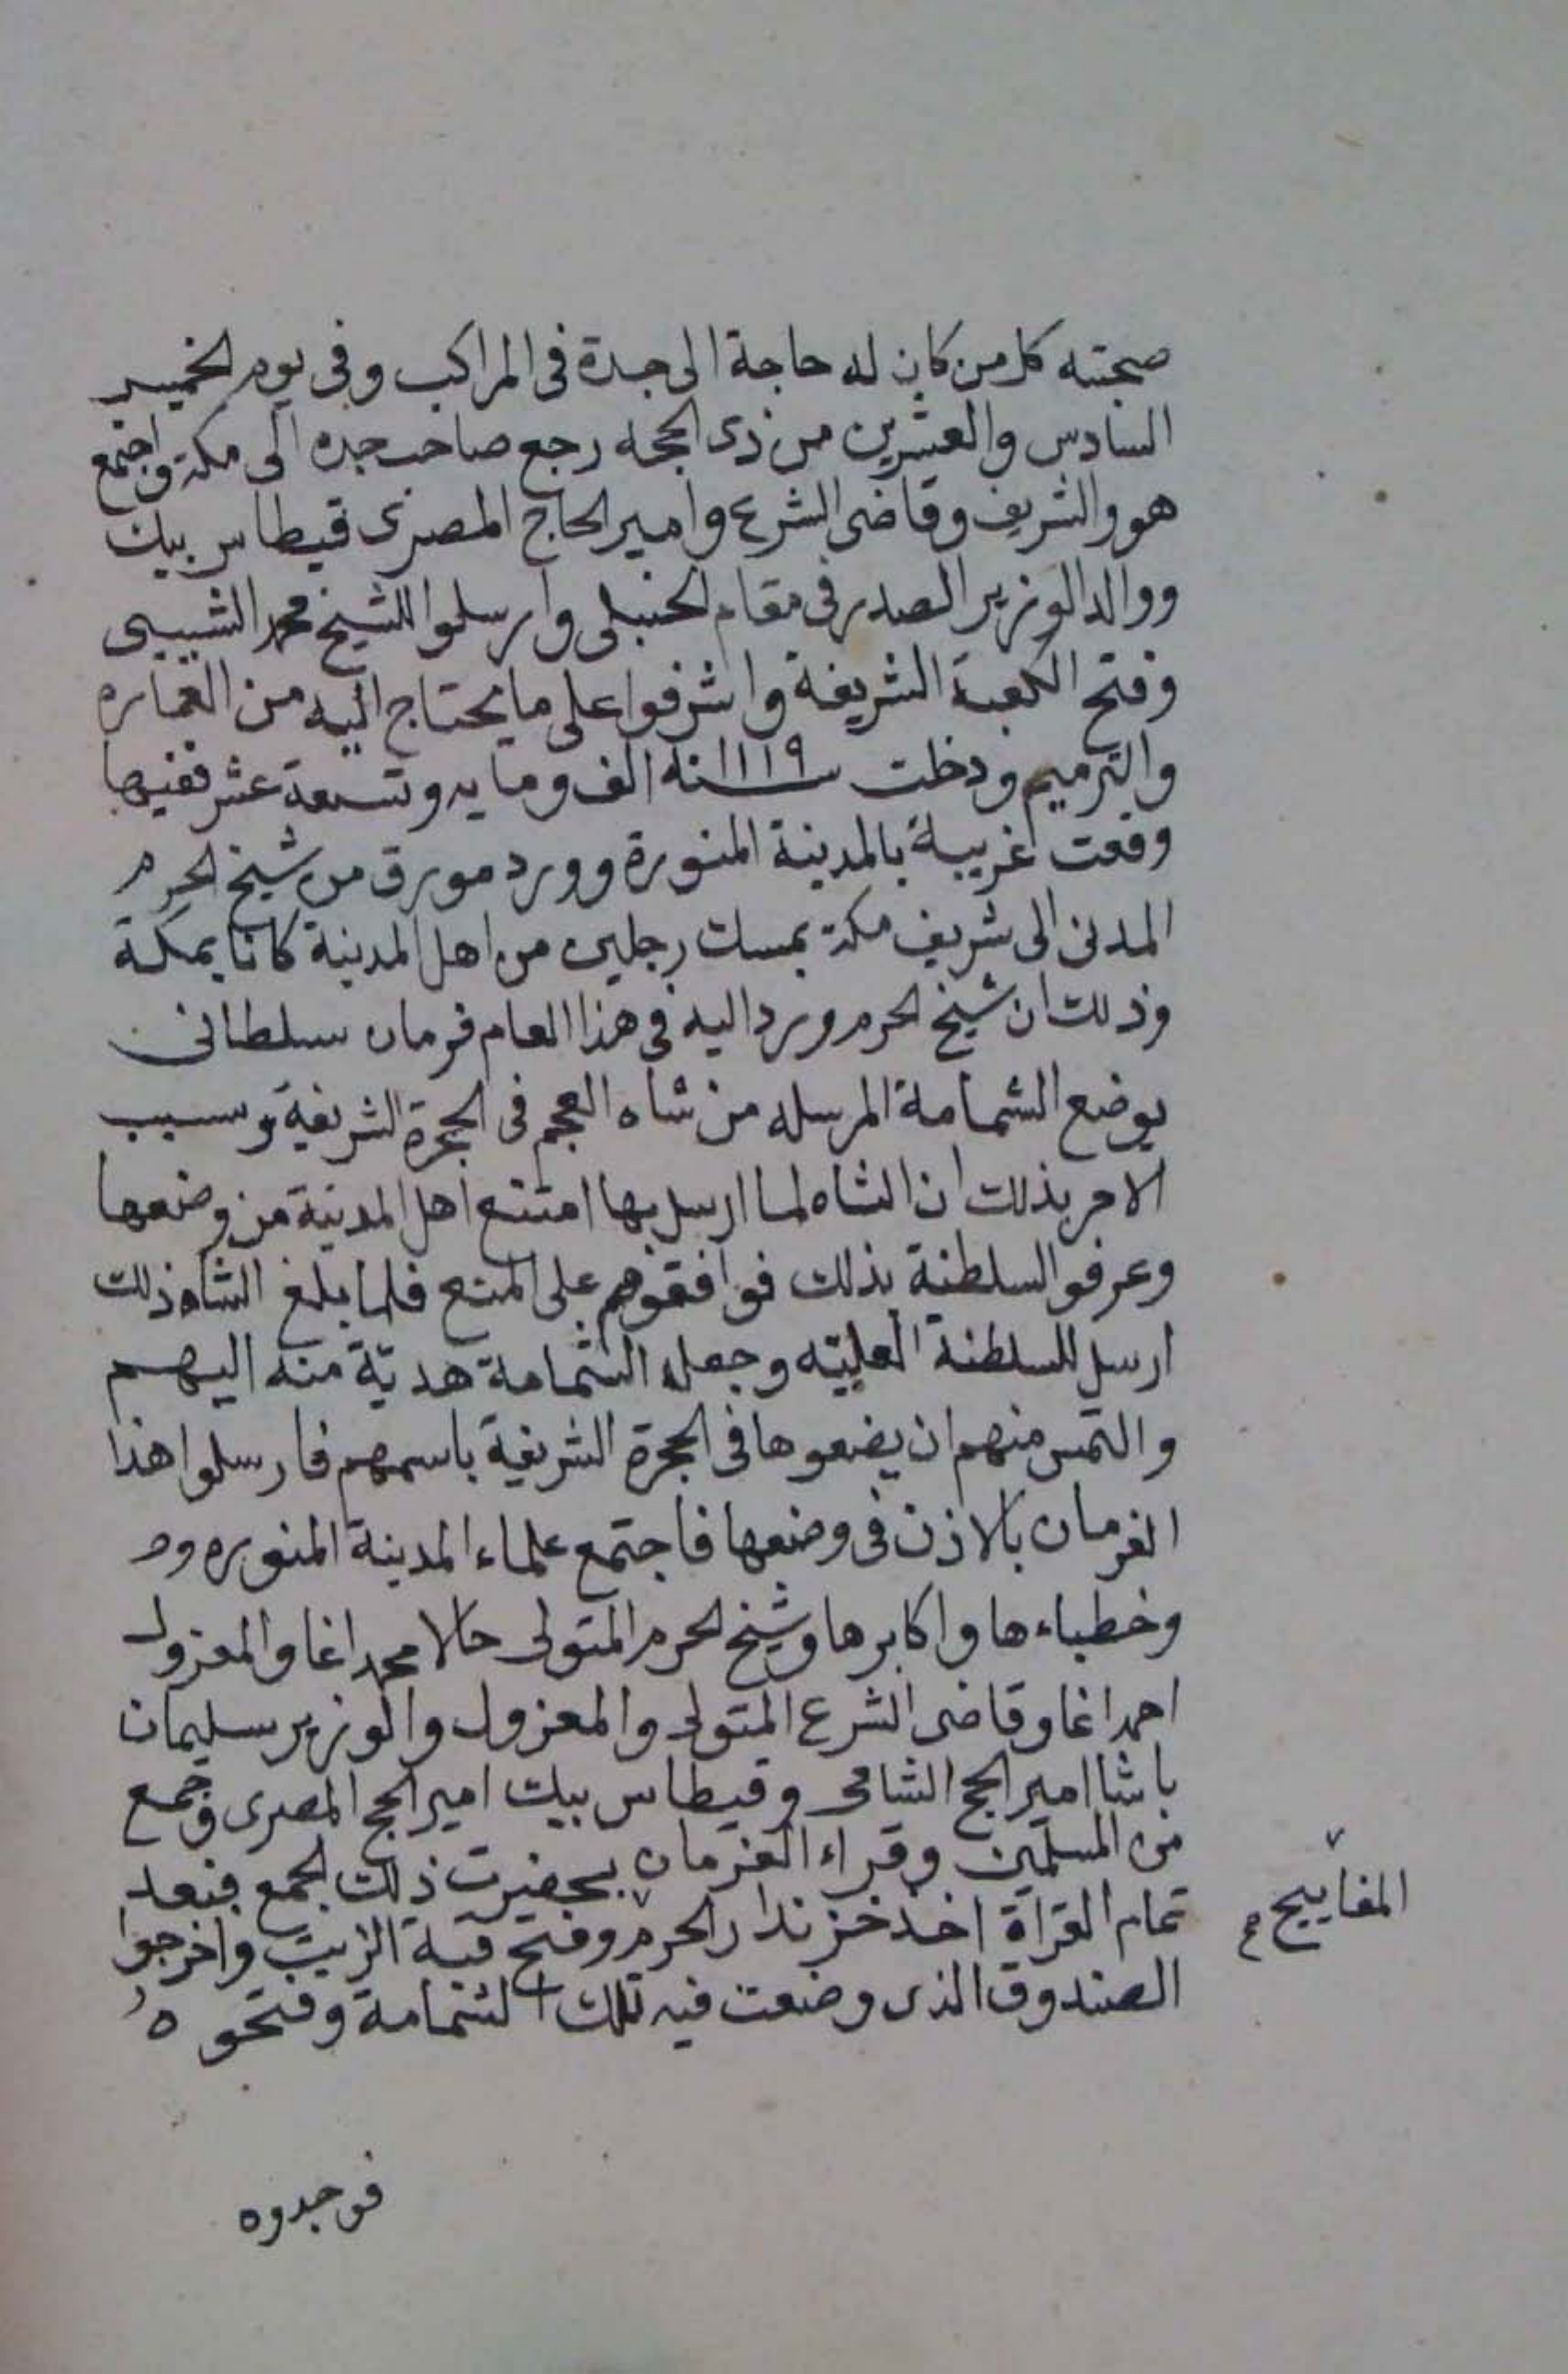 صحبته كل من كان له حاجة الى جدة فى المراكب وفى يوم الخميس
السادس والعشرين من ذى الحجه رجع صاحب جده الى مكة واجتمع
هو والشريف وقاضى الشرع وامير الحاج المصرى قيطاس بيك
ووالد الوزير الصدر فى مقام الحنبلى وارسلوا للشيخ محمد الشيبى
وفتح الكعبة الشريفة واشرفوا على ما يحتاج اليه من العماره
والترميم ودخلت سنه ١١١٩ الف ومايه وتسعة عشر ففيها
وقعت غريبة بالمدينة المنورة وورد مورق من شيخ الحرم
المدنى الى شريف مكة بمسك رجلين من اهل المدينة كانا بمكة
وذلك ان شيخ الحرم ورد اليه فى هذا العام فرمان سلطانى
بوضع الشمامة المرسله من شاه العجم فى الحجرة الشريفة وسبب
الامر بذلك ان الشاه لما ارسل بها امتنع اهل المدينة من وضعها
وعرفوا السلطنة بذلك فوافقوهم على المنع فلما بلغ الشاه ذلك
ارسل للسلطنة العليّه وجعل الشمامة هديّة منه اليهم
والتمس منهم ان يضعوها فى الحجرة الشريفة باسمهم فارسلوا هذا
الفرمان بالاذن فى وضعها فاجتمع علماء المدينة المنوره و
وخطباءها واكابرها وشيخ الحرم المتولى حالا محمد اغا والمعزول
احمد اغا وقاضى الشرع المتولى والمعزول والوزير سليمان
باشا امير الحج الشامى وقيطاس بيك امير الحج المصرى وجمع
من المسلمين وقراء الفرمان بحضرت ذلك الجمع فبعد
تمام القرآة اخذ خزندار الحرم وفتح قبة الزيت واخرجوا
المفاييح
الصندوق الذى وضعت فيه تلك الشمامة وفتحوه
فوجدوه